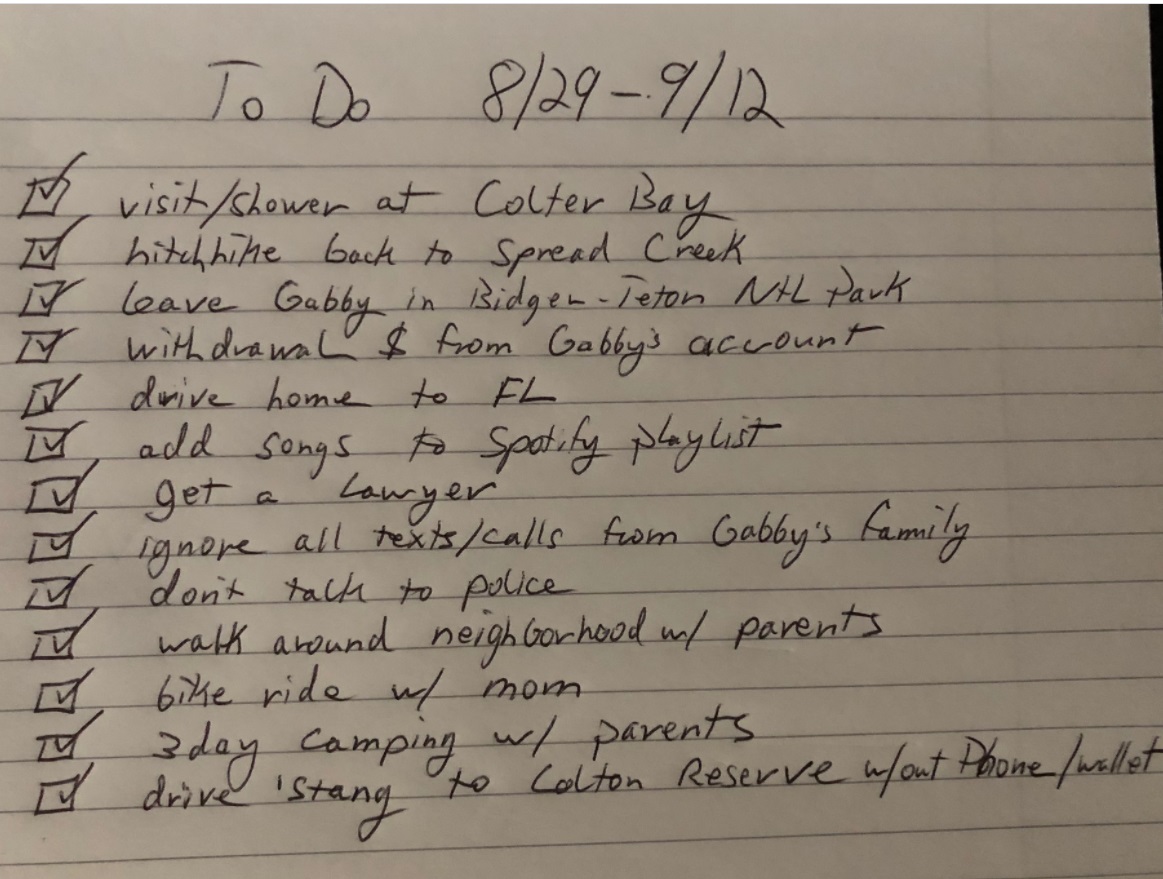 To Do 8/29-9/12
visit/shower at Colter Bay
hitchhike back to Spread Creek
leave Gabby in Bidger-Teton Ntl Park
withdrawal $ from Gabby's account
drive home to FL
add songs to Spotify playlist
get a lawyer
ignore all texts/calls from Gabby's family
don't talk to police
walk around neighborhood w/ parents
bike ride w/ mom
3day camping w/ parents
drive 'Stang to Colton Reserve w/out Phone/wallet